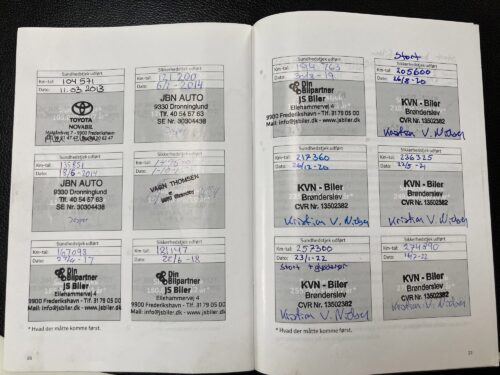 Sundhedstjek udført
Km-tal: 104571
Dato: 11.03 2013
TOYOTA
NOVABIL
Sikkerhedstjek udført
Km-tal: 121 200
Dato: 6/2-2014
JBN AUTO
9330 Dronninglund
Tlf. 40 54 57 63
SE Nr. 30304438
Jesper
Sundhedstjek udført
Km-tal:
Dato: 18/6-2014
JBN AUTO
9330 Dronninglund
Tlf. 40 54 57 63
SE Nr. 30304438
Jesper
Sikkerhedstjek udført
Km-tal:
Dato:
VAGN THOMSEN
Sundhedstjek udført
Km-tal: 167098
Dato:
Din
Bilpartner
JS Biler
Ellehammervej 4
9900 Frederikshavn - Tlf. 31 79 05 00
Mail: info@jsbiler.dk - www.jsbiler.dk
Sikkerhedstjek udført
Km-tal: 181147
Dato: 22/6-18
Din
Bilpartner
JS Biler
Ellehammervej 4
9900 Frederikshavn - Tlf. 31 79 05 00
Mail: info@jsbiler.dk - www.jsbiler.dk
* Hvad der måtte komme først.
20
Sundhedstjek udført
Km-tal: 194 763
Dato:
Din
Bilpartner
JS Biler
Ellehammervej 4
9900 Frederikshavn - Tlf. 31 79 05 00
Mail: info@jsbiler.dk - www.jsbiler.dk
Stort
Sikkerhedstjek udført
Km-tal: 205600
Dato: 26/8-20
KVN - Biler
Brønderslev
CVR Nr. 13502382
Kristian V. Nielsen
Sundhedstjek udført
Km-tal: 217360
Dato:
KVN - Biler
Brønderslev
CVR Nr. 13502382
Kristian V. Nielsen
Sikkerhedstjek udført
Km-tal: 236325
Dato:
KVN - Biler
Brønderslev
CVR Nr. 13502382
Kristian V. Nielsen
Sundhedstjek udført
Km-tal: 257300
Dato: 23/1-22
Stort
KVN - Biler
Brønderslev
CVR Nr. 13502382
Kristian V. Nielsen
Sikkerhedstjek udført
Km-tal:
Dato:
KVN - Biler
Brønderslev
CVR Nr. 13502382
Kristian V. Nielsen
* Hvad der måtte komme først.
21